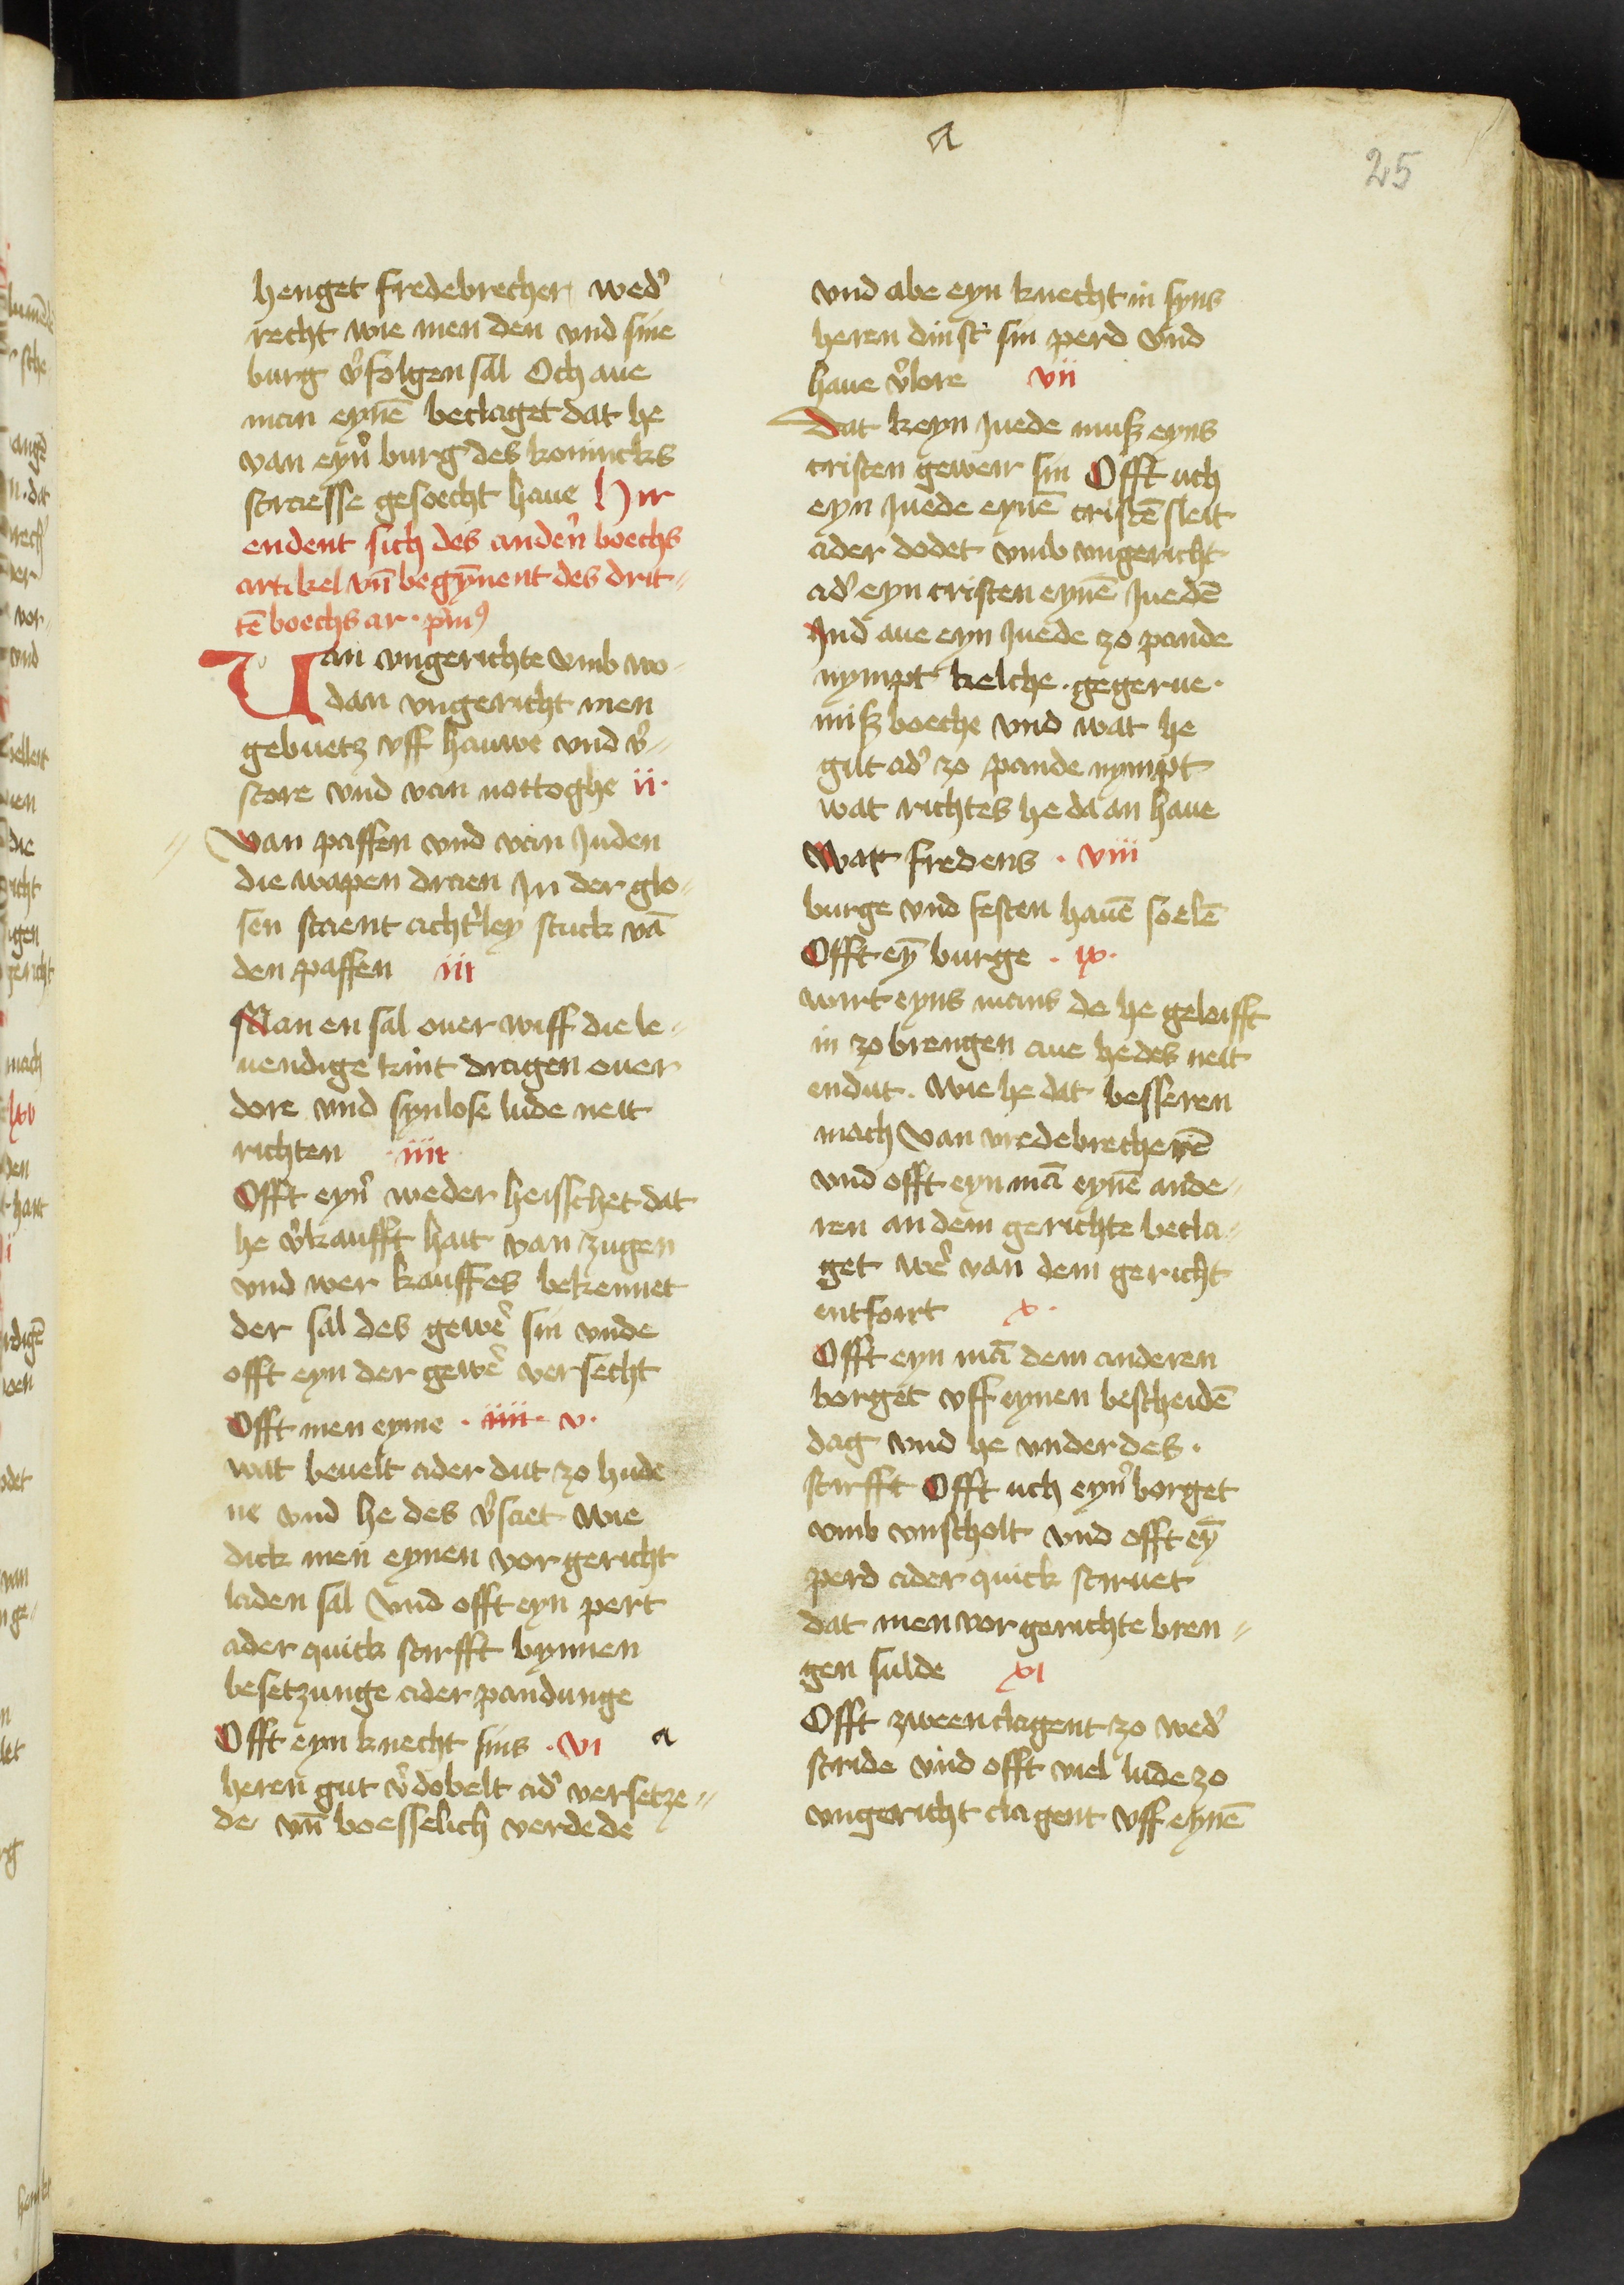 a
25
henget fredebrecher wed'
recht wie men den vnd sine
burg v'folgen sal Och aue
man eynē beclaget dat he
van eyn' burg des konincks
straesse gesoecht haue Hir
endent sich des anden' boechs
artikel vn̄ begȳnent des drit-
tē boechs ar · pm9
Uan vngerichte vmb wo-
dan vngericht men
gebuetz vff hauwe vnd v'-
store vnd van nottoghe ii·
Van paffen vnd van Juden
die wapen draen In der glo-
sen staent acht'ley stuck vā
den paffen iii
Man en sal ouer wiff die le-
uendige kint dragen ouer
dore vnd synlose lude neit
richten iiii
Offt eyn' weder heisschet dat
he v'kaufft hait van zugen
vnd wer kauffes bekennet
der sal des gewe' sin vnde
offt eyn der gewe' versecht
Offt men eyme · iiii · v·
wat beuelt ader dut zo hude
ne vnd he des v'saet wie
dick men eynen vor gericht
laden sal Vnd offt eyn pert
ader quick stirfft bynnen
besetzunge ader pandunge
Offt eyn knecht sins · vi a
heren gut v'dobelt ad' versetze-
de vn̄ boesselich verdede
vnd abe eyn knecht in syns
heren dinst sin perd vnd
haue v'lore vii
Dat keyn Juede muß eyns
cristen geweir sin Offt uch
eyn Juede eynē cristē sleit
ader dodet vmb vngericht
ad' eyn cristen eynē Juedē
Ind aue eyn Juede zo pande
nympt kelche · gegerue ·
miß boeche vnd wat he
gut ad' zo pande nympt
wat richtes he da an haue
Wat fredens · viii
burge vnd festen hauē soelē
Offt eȳ burge · ix·
wirt eyns mans de he geloifft
in zo brengen aue he des neit
endut · wie he dat besseren
mach Van vredebrecherē
vnd offt eyn mā eynē ande-
ren an dem gerichte becla-
get we' van dem gericht
entfoirt x ·
Offt eyn mā dem anderen
borget vff eynen bescheidē
dag vnd he vnder des ·
stirfft Offt uch eyn' borget
vmb vnscholt vnd offt eȳ
perd ader quick stiruet
dat men vor gerichte bren-
gen sulde xi
Offt zween clagent zo wed'
stride vnd offt viel lude zo
vngericht clagent vff eynē